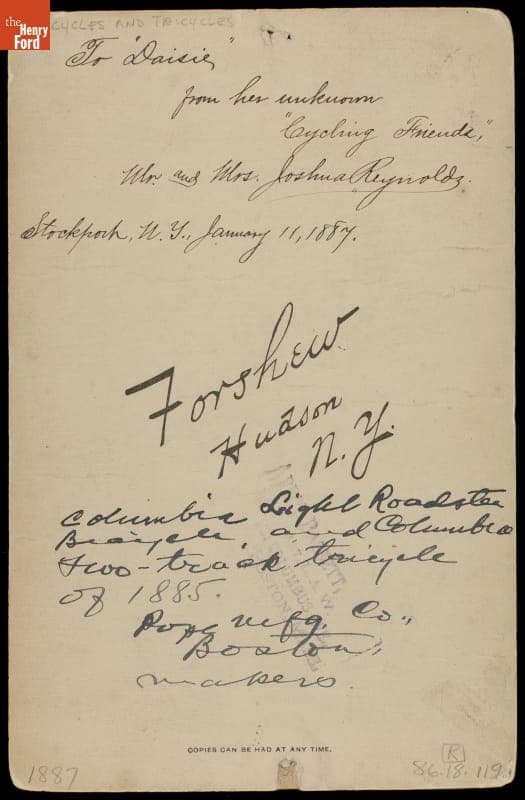 the
Henry
Ford
CYCLES AND TRICYCLES
To "Daisie,"
from her unknown
"Cycling Friends,"
Mr. and Mrs. Joshua Reynolds.
Stockport, N.Y., January 11, 1887.
Forshew
Hudson
N.Y.
Columbia Light Roadster
Bicycle, and Columbia
two-track tricycle
of 1885.
Pope Mfg. Co.,
Boston,
makers.
COPIES CAN BE HAD AT ANY TIME.
1887
R
86.18.119.